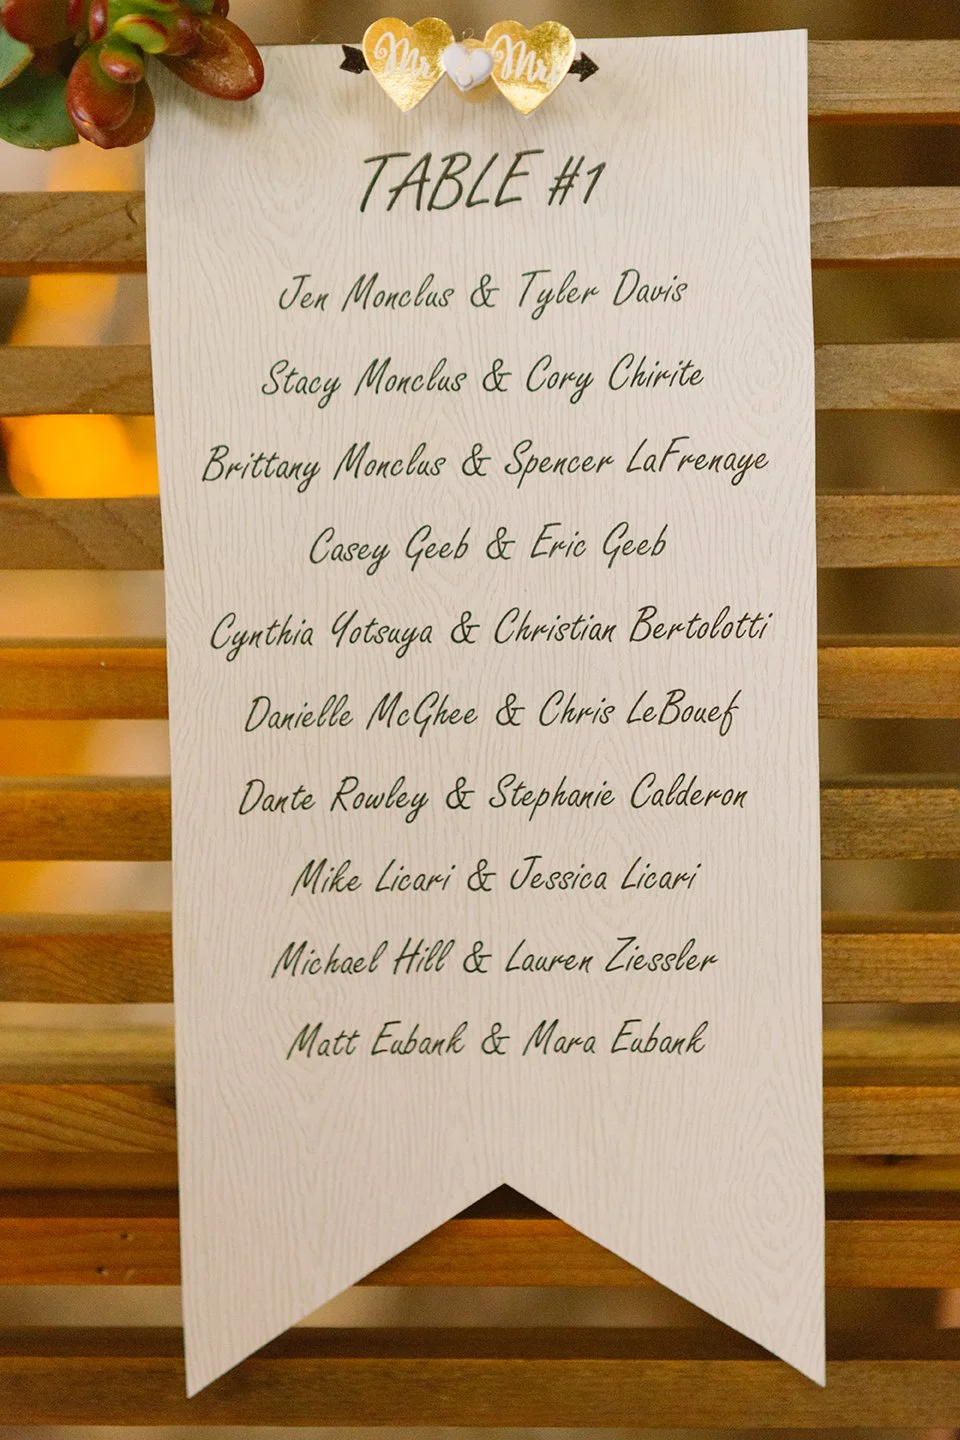 Mr & Mrs
TABLE #1
Jen Monclus & Tyler Davis
Stacy Monclus & Cory Chirite
Brittany Monclus & Spencer LaFrenaye
Casey Geeb & Eric Geeb
Cynthia Yotsuya & Christian Bertolotti
Danielle McGhee & Chris LeBouef
Dante Rowley & Stephanie Calderon
Mike Licari & Jessica Licari
Michael Hill & Lauren Ziessler
Matt Eubank & Mara Eubank